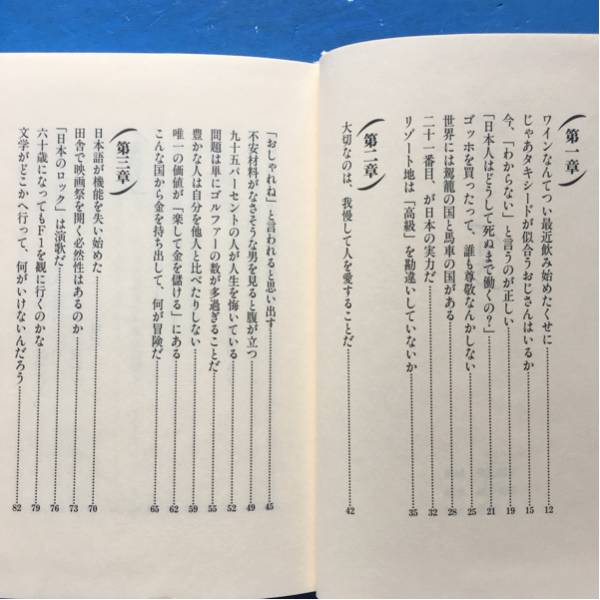 第一章
ワインなんてつい最近飲み始めたくせに 12
じゃあタキシードが似合うおじさんはいるか 15
今、「わからない」と言うのが正しい 19
「日本人はどうして死ぬまで働くの?」 21
ゴッホを買ったって、誰も尊敬なんかしない 25
世界には駕籠の国と馬車の国がある 28
二十一番目、が日本の実力だ 32
リゾート地は「高級」を勘違いしていないか 35
第二章
大切なのは、我慢して人を愛することだ 42
「おしゃれね」と言われると思い出す 45
不安材料がなさそうな男を見ると腹が立つ 49
九十五パーセントの人が人生を悔いている 52
問題は単にゴルファーの数が多過ぎることだ 55
豊かな人は自分を他人と比べたりしない 59
唯一の価値が「楽して金を儲ける」にある 62
こんな国から金を持ち出して、何が冒険だ 65
第三章
日本語が機能を失い始めた 70
田舎で映画祭を開く必然性はあるのか 73
「日本のロック」は演歌だ 76
六十歳になってもF1を観に行くのかな 79
文学がどこかへ行って、何がいけないんだろう 82